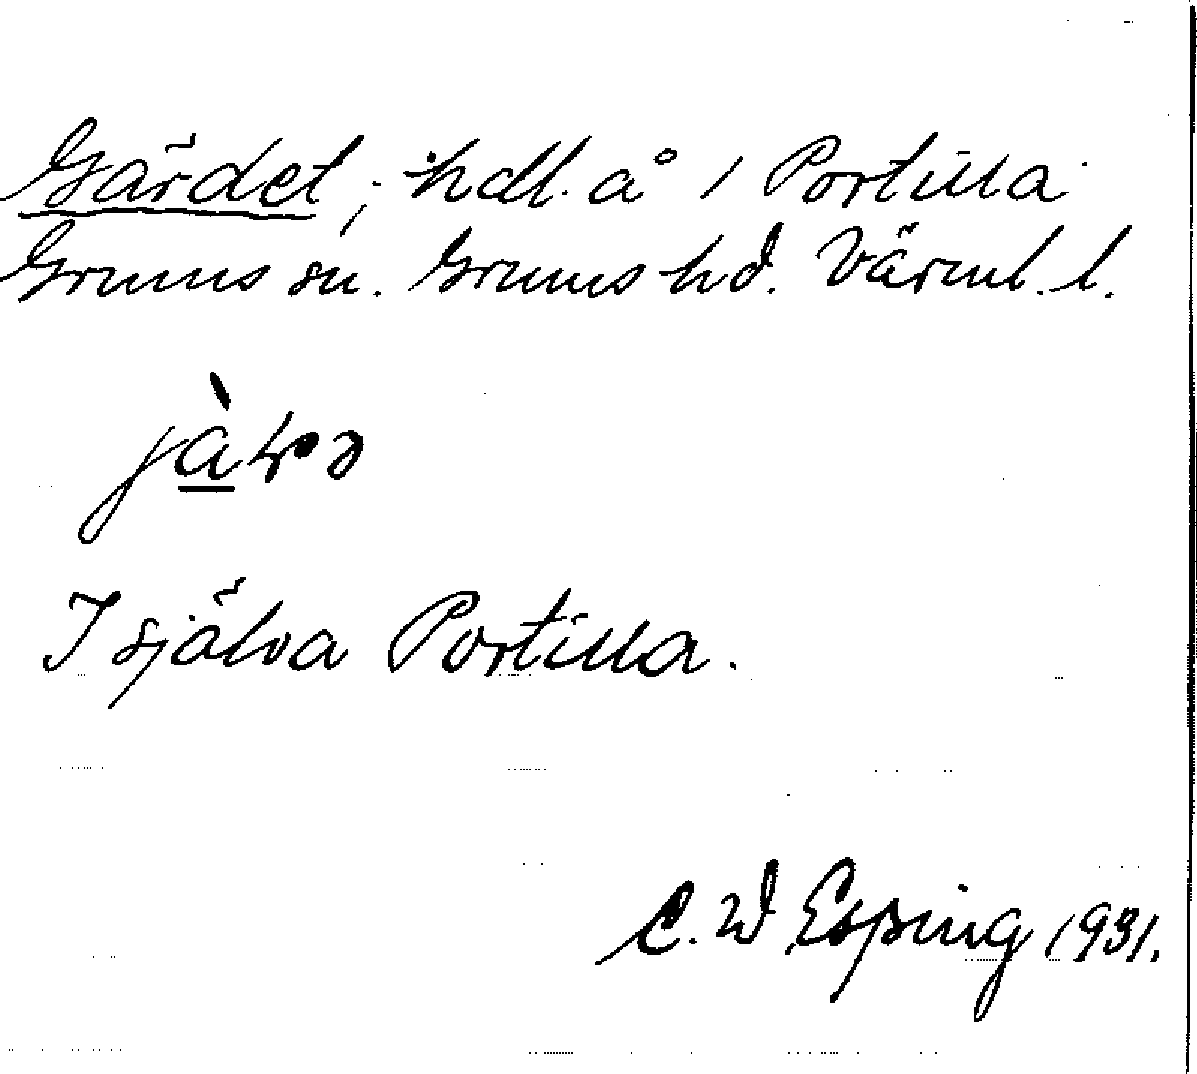 Gärdet; hdl. å 1 Portilla
Grums sn. Grums hd. Värml. l.
I själva Portilla.
C. W Esping 1931.